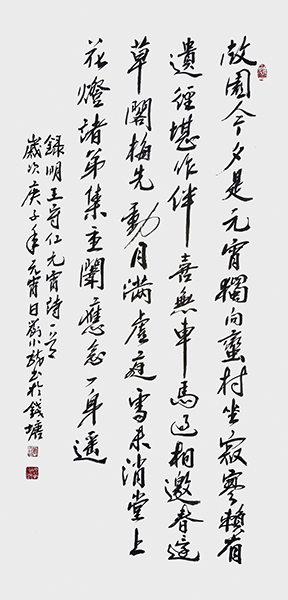 故園今夕是元宵獨向蠻村坐寂寥賴有
遺經堪作伴喜無車馬過相邀春還
草閣梅先動月滿虛庭雪未消堂上
花燈諸弟集重闈應念一身遙
録明王守仁元宵詩一首
歲次庚子年元宵日劉小書於錢塘